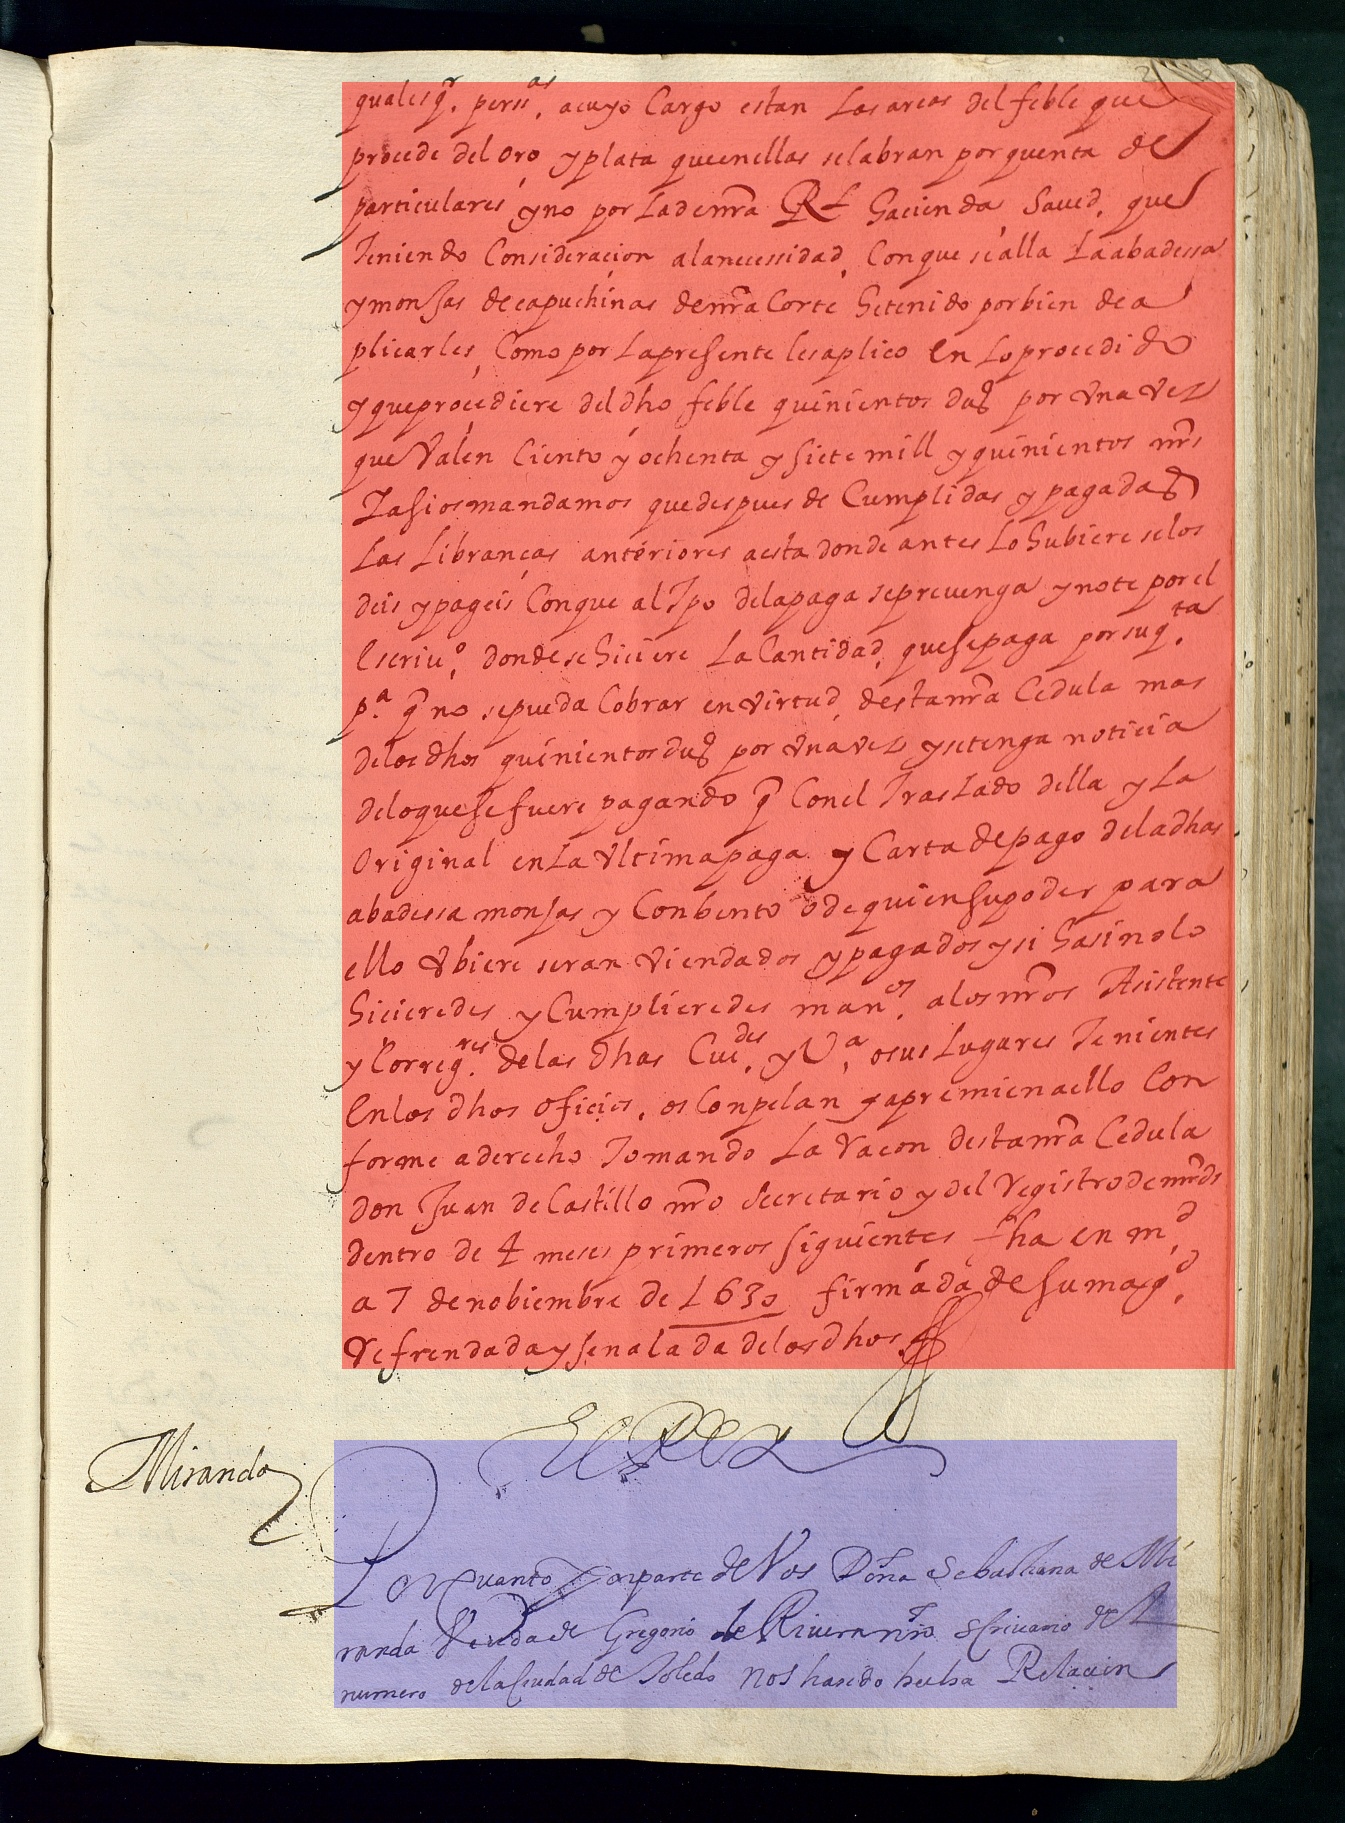 qualesqr. perssas. a cuyo Cargo estan Las arcas del feble que
procede del oro y plata que en ellas se labran por quenta de
particulares y no por La de nra Rl hacienda Saved. que
Teniendo Consideracion a la necessidad, Con que se alla La abadessa
y monjas de capuchinas de nra Corte he tenido por bien de a
plicarles, Como por La presente les aplico en Lo procedido
y que procediere del dho feble quinientos dus por vna vez
que Valen Ciento y ochenta y siete mill y quinientos mrs
Y asi os mandamos que despues de Cumplidas y pagadas
Las Libranças anteriores a esta donde antes Lo hubiere se los
deis y pageis Con que al Tpo de la paga se prevenga y note por el
Escriuo. donde se hiciere La Cantidad, que se paga por su qta.
pa. q no se pueda Cobrar en virtud desta nra Cedula mas
de los dhos quinientos dus por vna vez y se tenga noticia
de lo que se fuere pagando q Con el Traslado della y La
Original en La vltima paga y Carta de pago de la dhas
abadessa monjas y Conbento o de quien su poder para
ello vbiere seran Viendados y pagados y si hasi no lo
hicieredes y Cumplieredes manos. a los nros Asistente
y Corregres. de las dhas Ciudes. y Va. o sus Lugares Tenientes
En los dhos oficios, os Conpelan y apremien a ello Con
forme a derecho Tomando La Racon desta nra Cedula
don Juan de Castillo nro Secretario y del Registro de mrds
dentro de 4 meses primeros siguientes fha en md.
a 7 de nobiembre de 1630 firmada de su magd.
Refrendada y senalada de los dhos.
El Rey
Miranda
Por quanto Por parte de Vos Doña Sebastiana de Mi
randa Viuda de Gregorio de Rivera nro Escrivano del
numero de la Ciudad de Toledo nos ha sido hecha Relacion